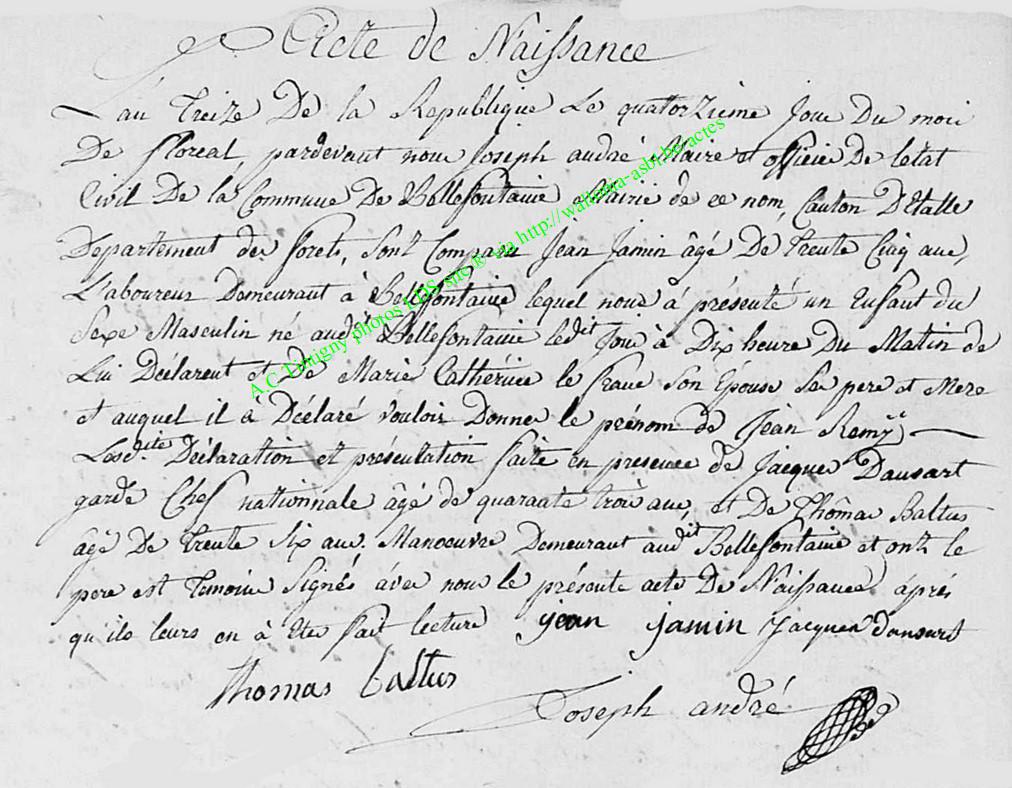 Acte de Naissance
L'an treize De la Republique Le quatorzieme Jour Du mois
De floreal, pardevant nous Joseph andré Maire et officie De letat
Civil De la Commune De Bellefontaine Mairie de ce nom, Canton D'Etalle
Departement des forets, Sont Comparu Jean Jamin âgé De trente Cinq ans,
Laboureur Demeurant à Bellefontaine lequel nous à présenté un Enfant du
Sexe Masculin né audit Bellefontaine ledit Jour à Dix heure Du Matin de
Lui Déclarent et De Marie Catherine le Son Epouse Ses pere et Mere
et auquel il à Déclaré vouloir Donner le prénom de Jean Remÿ
Lasdite Déclaration et présentation faite en presence de Jacques Dausart
garde Chef nationnale âgé de quarante trois ans, et De Thômas Baltus
âgé De trente Six ans. Manoeuvre Demeurant audit Bellefontaine et ont le
pere et Temoins Signés avec nous le présente acte De Naissance aprés
qu'ils leurs en à Etes fait lecture jean jamin Jacques dausart
thomas baltus
Joseph andré
A.C. Tintigny photos EDS site ® via http://wallonia-asbl.be/actes